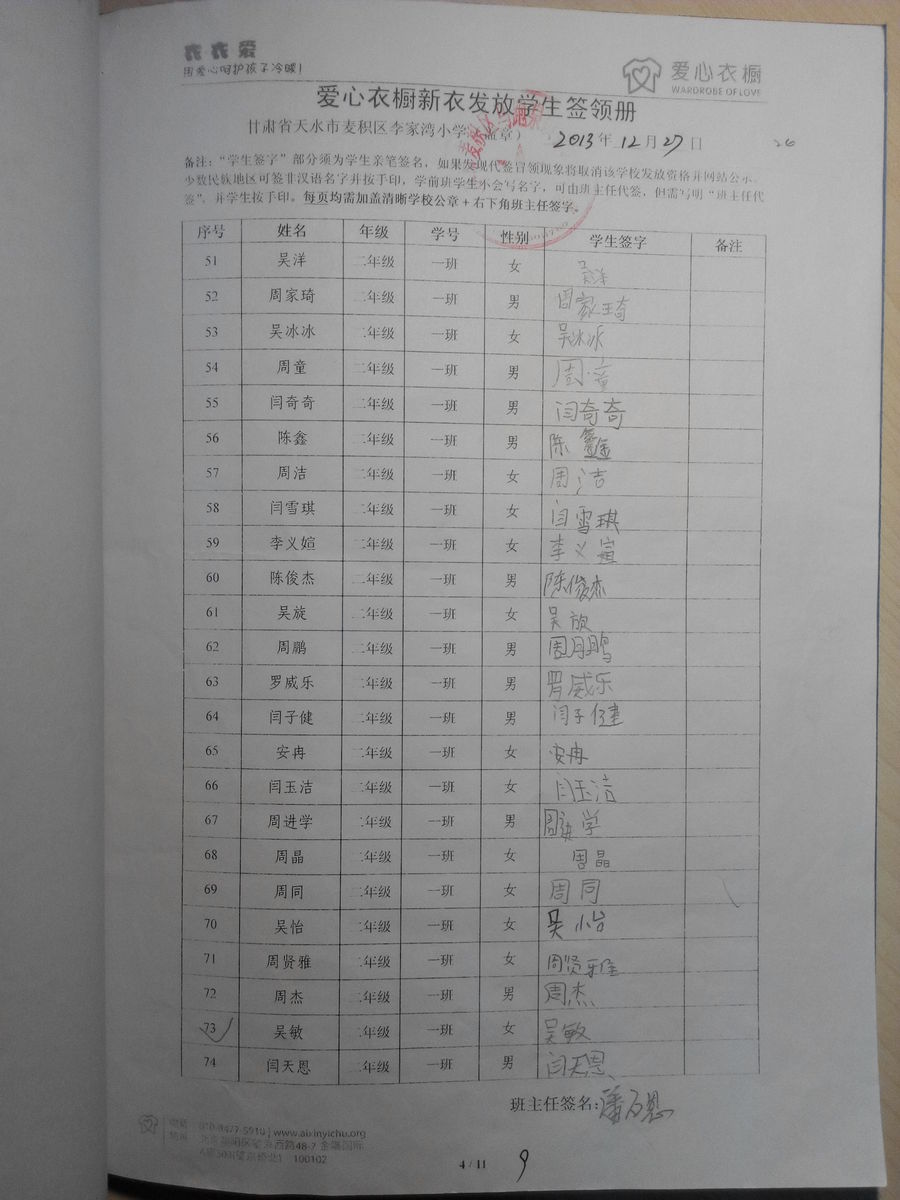 衣衣爱
用爱心呵护孩子冷暖！
爱心衣橱
WARDROBE OF LOVE
爱心衣橱新衣发放学生签领册
甘肃省天水市麦积区李家湾小学（盖章） 2013年12月27日
备注：“学生签字”部分须为学生亲笔签名，如果发现代签冒领现象将取消该学校发放资格并网站公示。
少数民族地区可签非汉语名字并按手印，学前班学生不会写名字，可由班主任代签，但需写明“班主任代
签”，并学生按手印。每页均需加盖清晰学校公章+右下角班主任签字。
序号 姓名 年级 学号 性别 学生签字 备注
51 吴洋 二年级 一班 女 吴洋
52 周家琦 二年级 一班 男 周家琦
53 吴冰冰 二年级 一班 女 吴冰冰
54 周童 二年级 一班 男 周童
55 闫奇奇 二年级 一班 男 闫奇奇
56 陈鑫 二年级 一班 男 陈鑫
57 周洁 二年级 一班 女 周洁
58 闫雪琪 二年级 一班 女 闫雪琪
59 李义媗 二年级 一班 女 李义
60 陈俊杰 二年级 一班 男 陈俊杰
61 吴旋 二年级 一班 女 吴放
62 周鹏 二年级 一班 男 周鹏
63 罗威乐 二年级 一班 男 罗威乐
64 闫子健 二年级 一班 男 闫子健
65 安冉 二年级 一班 女 安冉
66 闫玉洁 二年级 一班 女 闫玉洁
67 周进学 二年级 一班 男 周进学
68 周晶 二年级 一班 女 周晶
69 周同 二年级 一班 女 周同
70 吴怡 二年级 一班 女 吴怡
71 周贤雅 二年级 一班 女 周贤雅
72 周杰 二年级 一班 男 周杰
73 吴敏 二年级 一班 女 吴敏
74 闫天恩 二年级 一班 男 闫天恩
班主任签名：
www.aixinyichu.org
100102
4 / 11
9